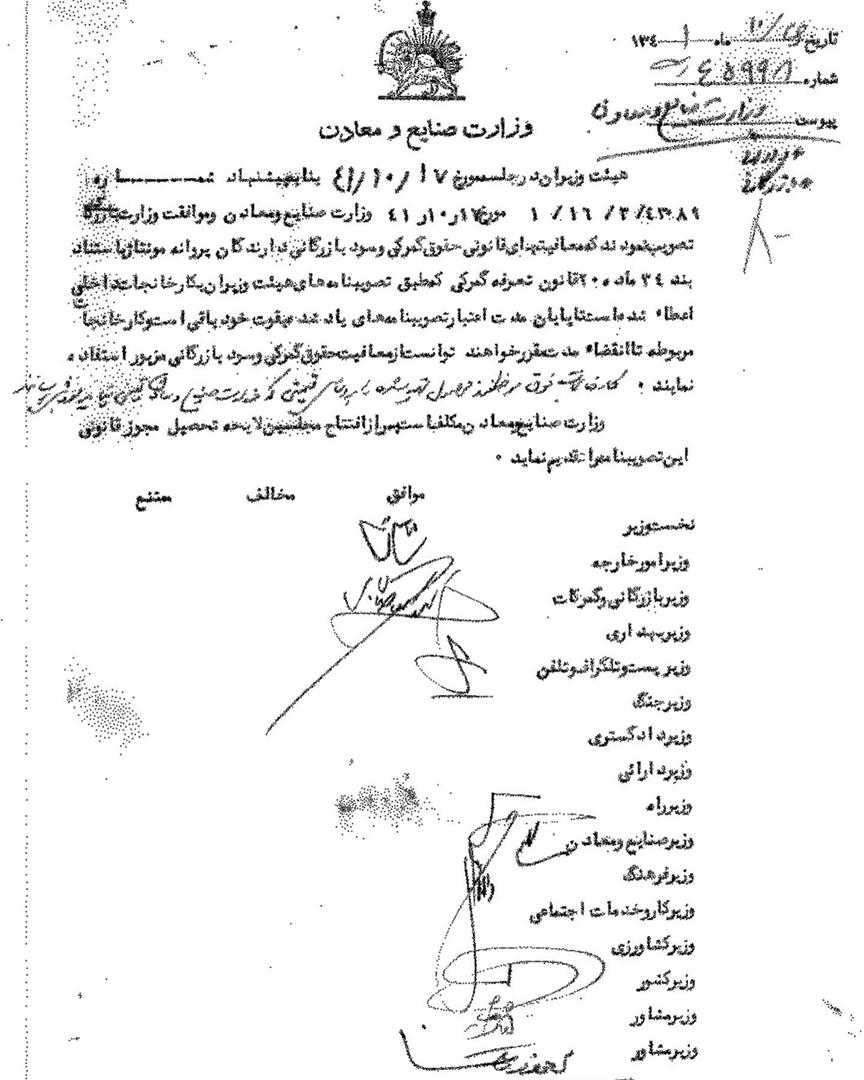 تاریخ ماه ۱ ۱۳۴
شماره ۴۵۹۹۸
پیوست
وزارت صنایع و معادن
وزارت صنایع و معادن
هیئت وزیران در جلسه مورخ ۱۷/۱۰/۴۱ بنا به پیشنهاد شمـــــاره
۱/۱۶/۳/۴۳۰۸۹ مورخ ۱۷ر۱۰ر۴۱ وزارت صنایع و معادن و موافقت وزارت بازرگانی
تصویب نمودند که معافیتهای قانونی حقوق گمرکی و سود بازرگانی دارندگان پروانه مونتاژ باستناد
بند ۲۴ ماده ۲۰ قانون تعرفه گمرکی که طبق تصویبنامه های هیئت وزیران بکارخانجات داخلی
اعطاء شده است تا پایان مدت اعتبار تصویبنامه های یاد شده بقوت خود باقی است و کارخانجات
مربوطه تا انقضاء مدت مقرر خواهند توانست از معافیت حقوق گمرکی و سود بازرگانی مزبور استفاده
نمایند . کارخانجات فوق موظفند محصول خود را به بهای که وزارت صنایع و معادن
وزارت صنایع و معادن مکلف است پس از افتتاح مجلسین لایحه تحصیل مجوز قانونی
این تصویبنامه را تقدیم نماید .
موافق مخالف ممتنع
نخست وزیر
وزیر امور خارجه
وزیر بازرگانی و گمرکات
وزیر بهداری
وزیر پست و تلگراف و تلفن
وزیر جنگ
وزیر دادگستری
وزیر دارائی
وزیر راه
وزیر صنایع و معادن
وزیر فرهنگ
وزیر کار و خدمات اجتماعی
وزیر کشاورزی
وزیر کشور
وزیر مشاور
وزیر مشاور